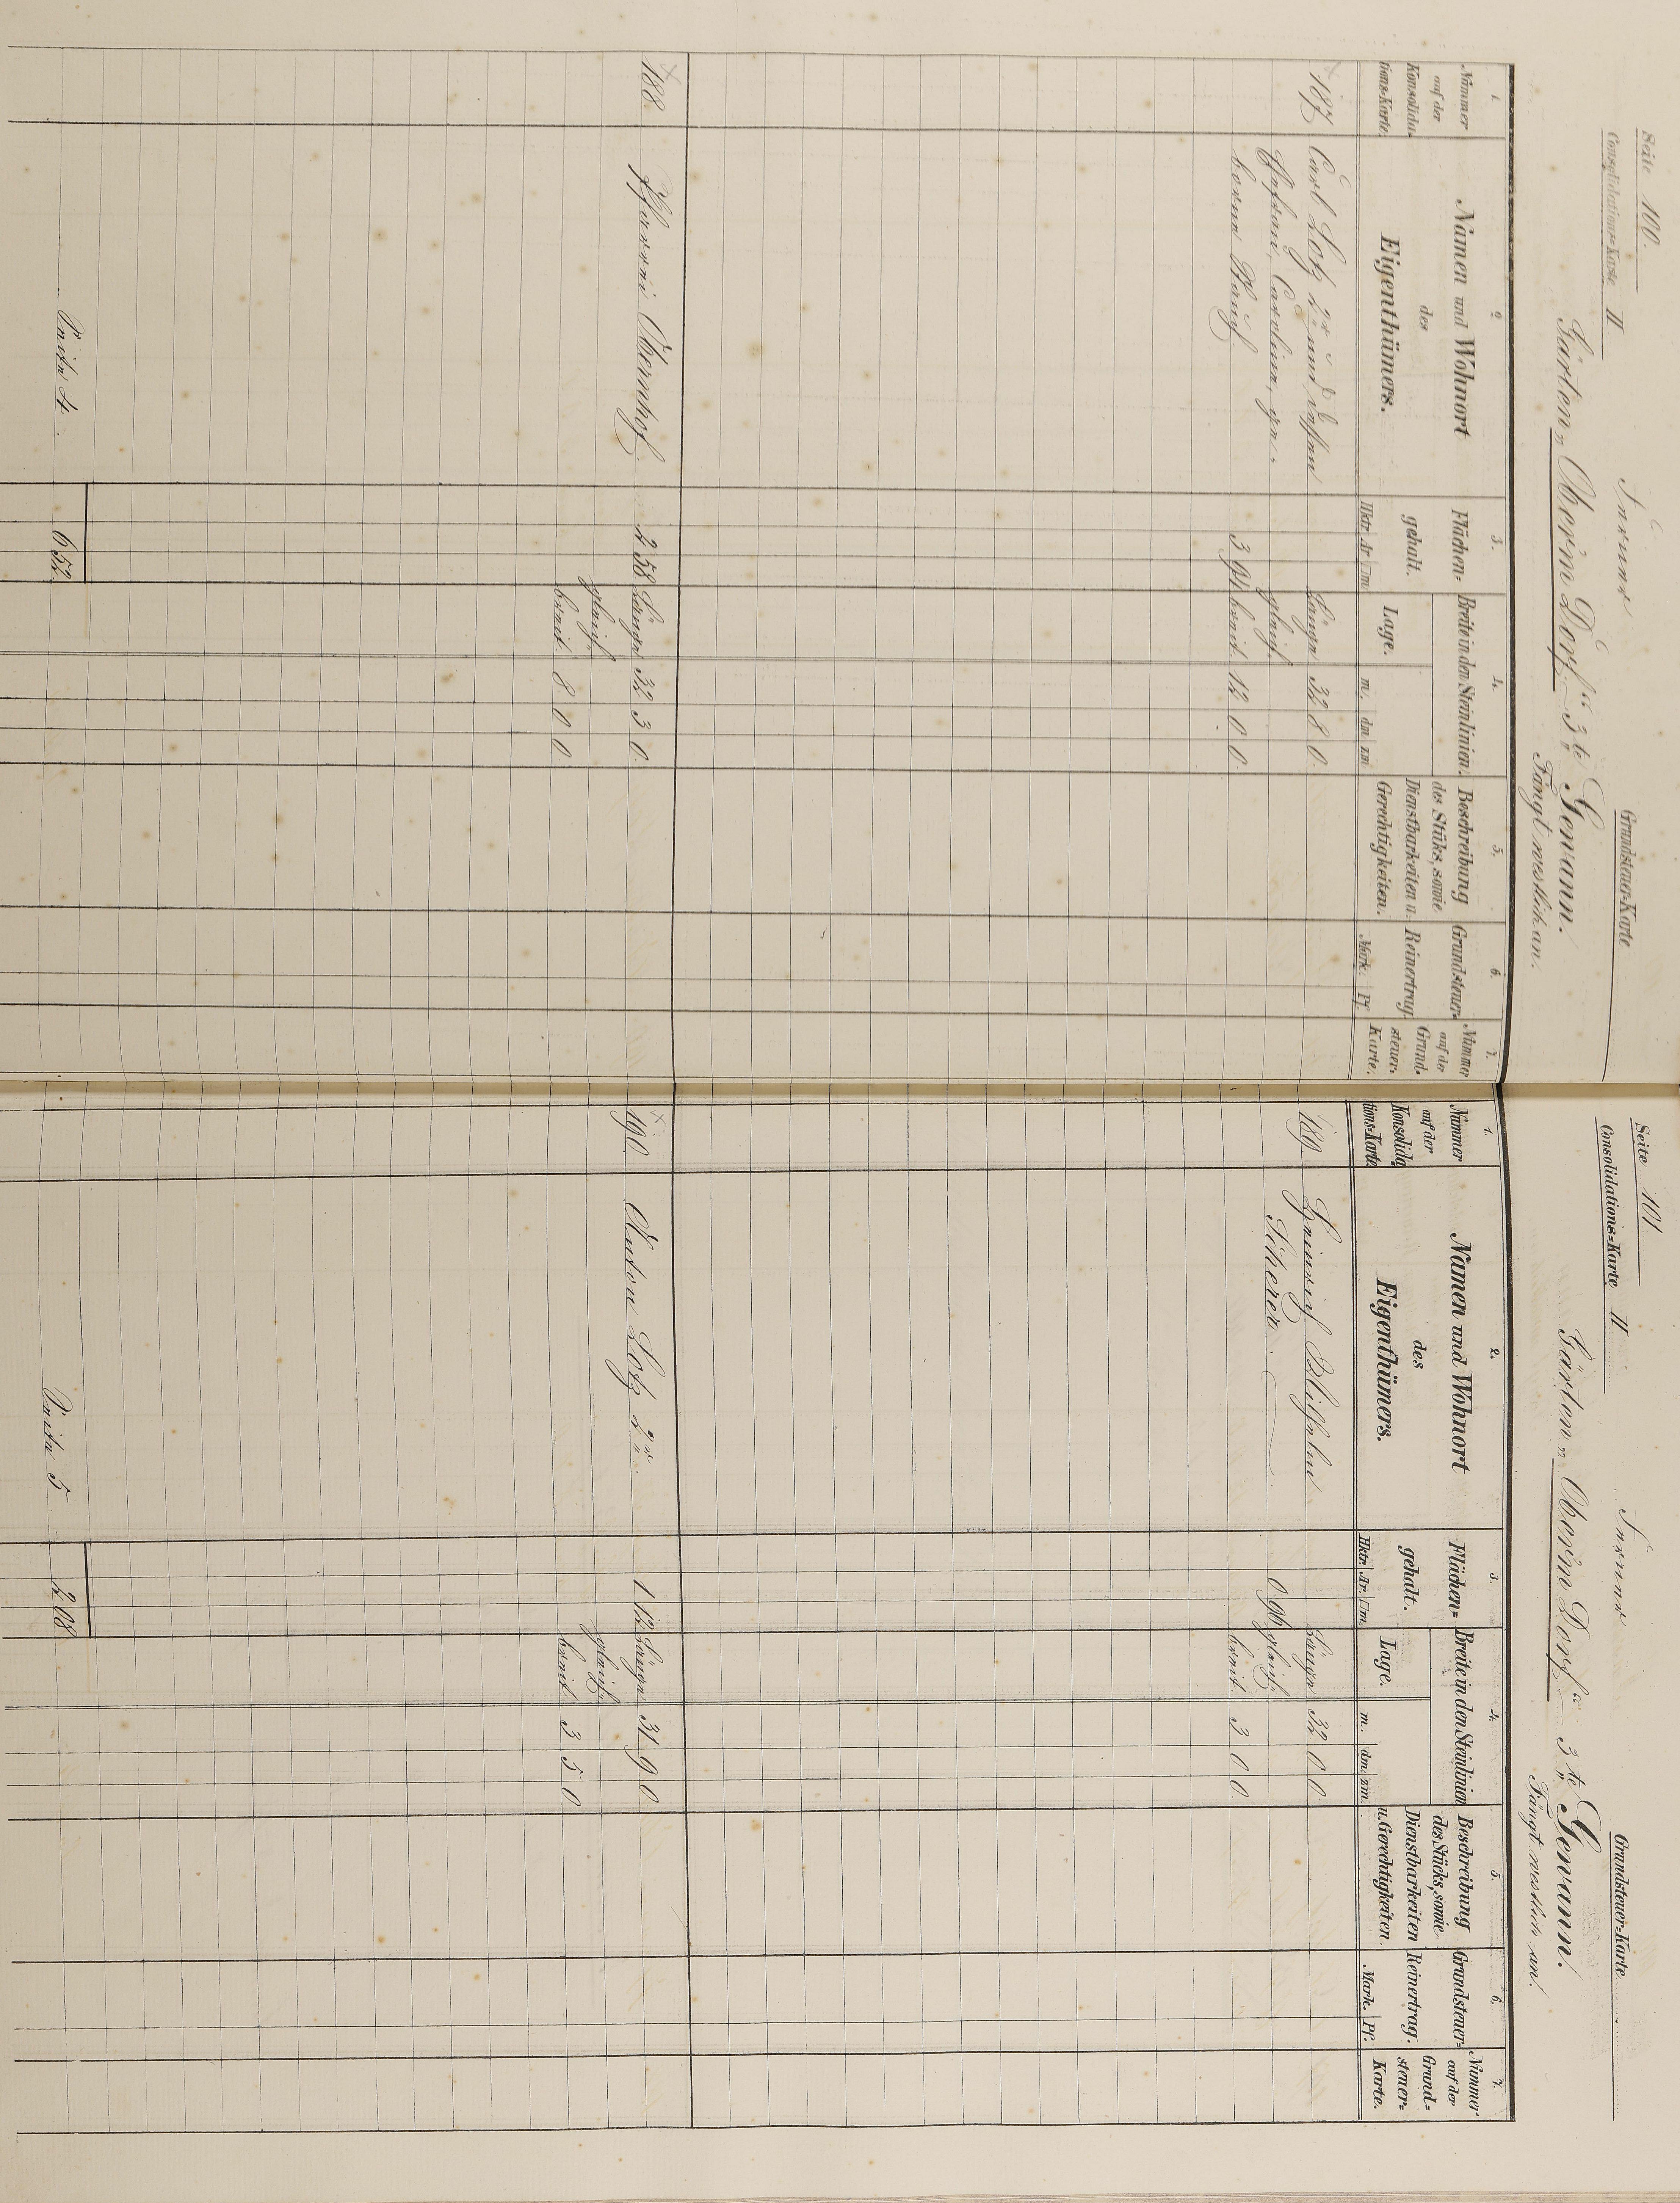 Seite 100.
Consolidations=Karte II
Grundsteuer=Karte
Gärten „Ober'm Dorf“ 3te Gewann.
Fängt westlich an.
1. 2. 3. 4. 5. 6. 7.
Nummer auf der Konsolida=tions=Karte
Namen und Wohnort des Eigenthümers.
Flächen=gehalt. Hktr. Ar □m
Breite in den Steinlinien. Lage. m. dm zm
Beschreibung des Stüks, sowie Dienstbarkeiten u. Gerechtigkeiten.
Grundsteuer=Reinertrag. Mark. Pf.
Nummer auf der Grund=steuer=Karte.
187 Carl Lotz 2r und dessen Länge 32 8 0
Ehefrau, Caroline, ge= gleich
borne Stauch 3 94 breit 12 0 0
188. Pfarrei Obernhof. 2 58 Länge 32 3 0
gleich
breit 8 0 0
Seite 4. 6 52
Seite 101
Consolidations=Karte II
Grundsteuer=Karte
Gärten „Ober'm Dorf“ 3te Gewann.
Fängt westlich an.
1. 2. 3. 4. 5. 6. 7.
Nummer auf der Konsolida tions=Karte
Namen und Wohnort des Eigenthümers.
Flächen=gehalt. Hktr. Ar. □m
Breite in den Steinlinien Lage. m. dm zm.
Beschreibung des Stücks, sowie Dienstbarkeiten u. Gerechtigkeiten.
Grundsteuer=Reinertrag. Mark. Pf.
Nummer auf der Grund=steuer=Karte.
189. Heinrich Wilhelm Länge 32 0 0
Scherer. 0 96 gleich
breit 3 0 0
190. Anton Lotz 2r 1 12 Länge 31 9 0
gleich
breit 3 5 0
Seite 5 2 08